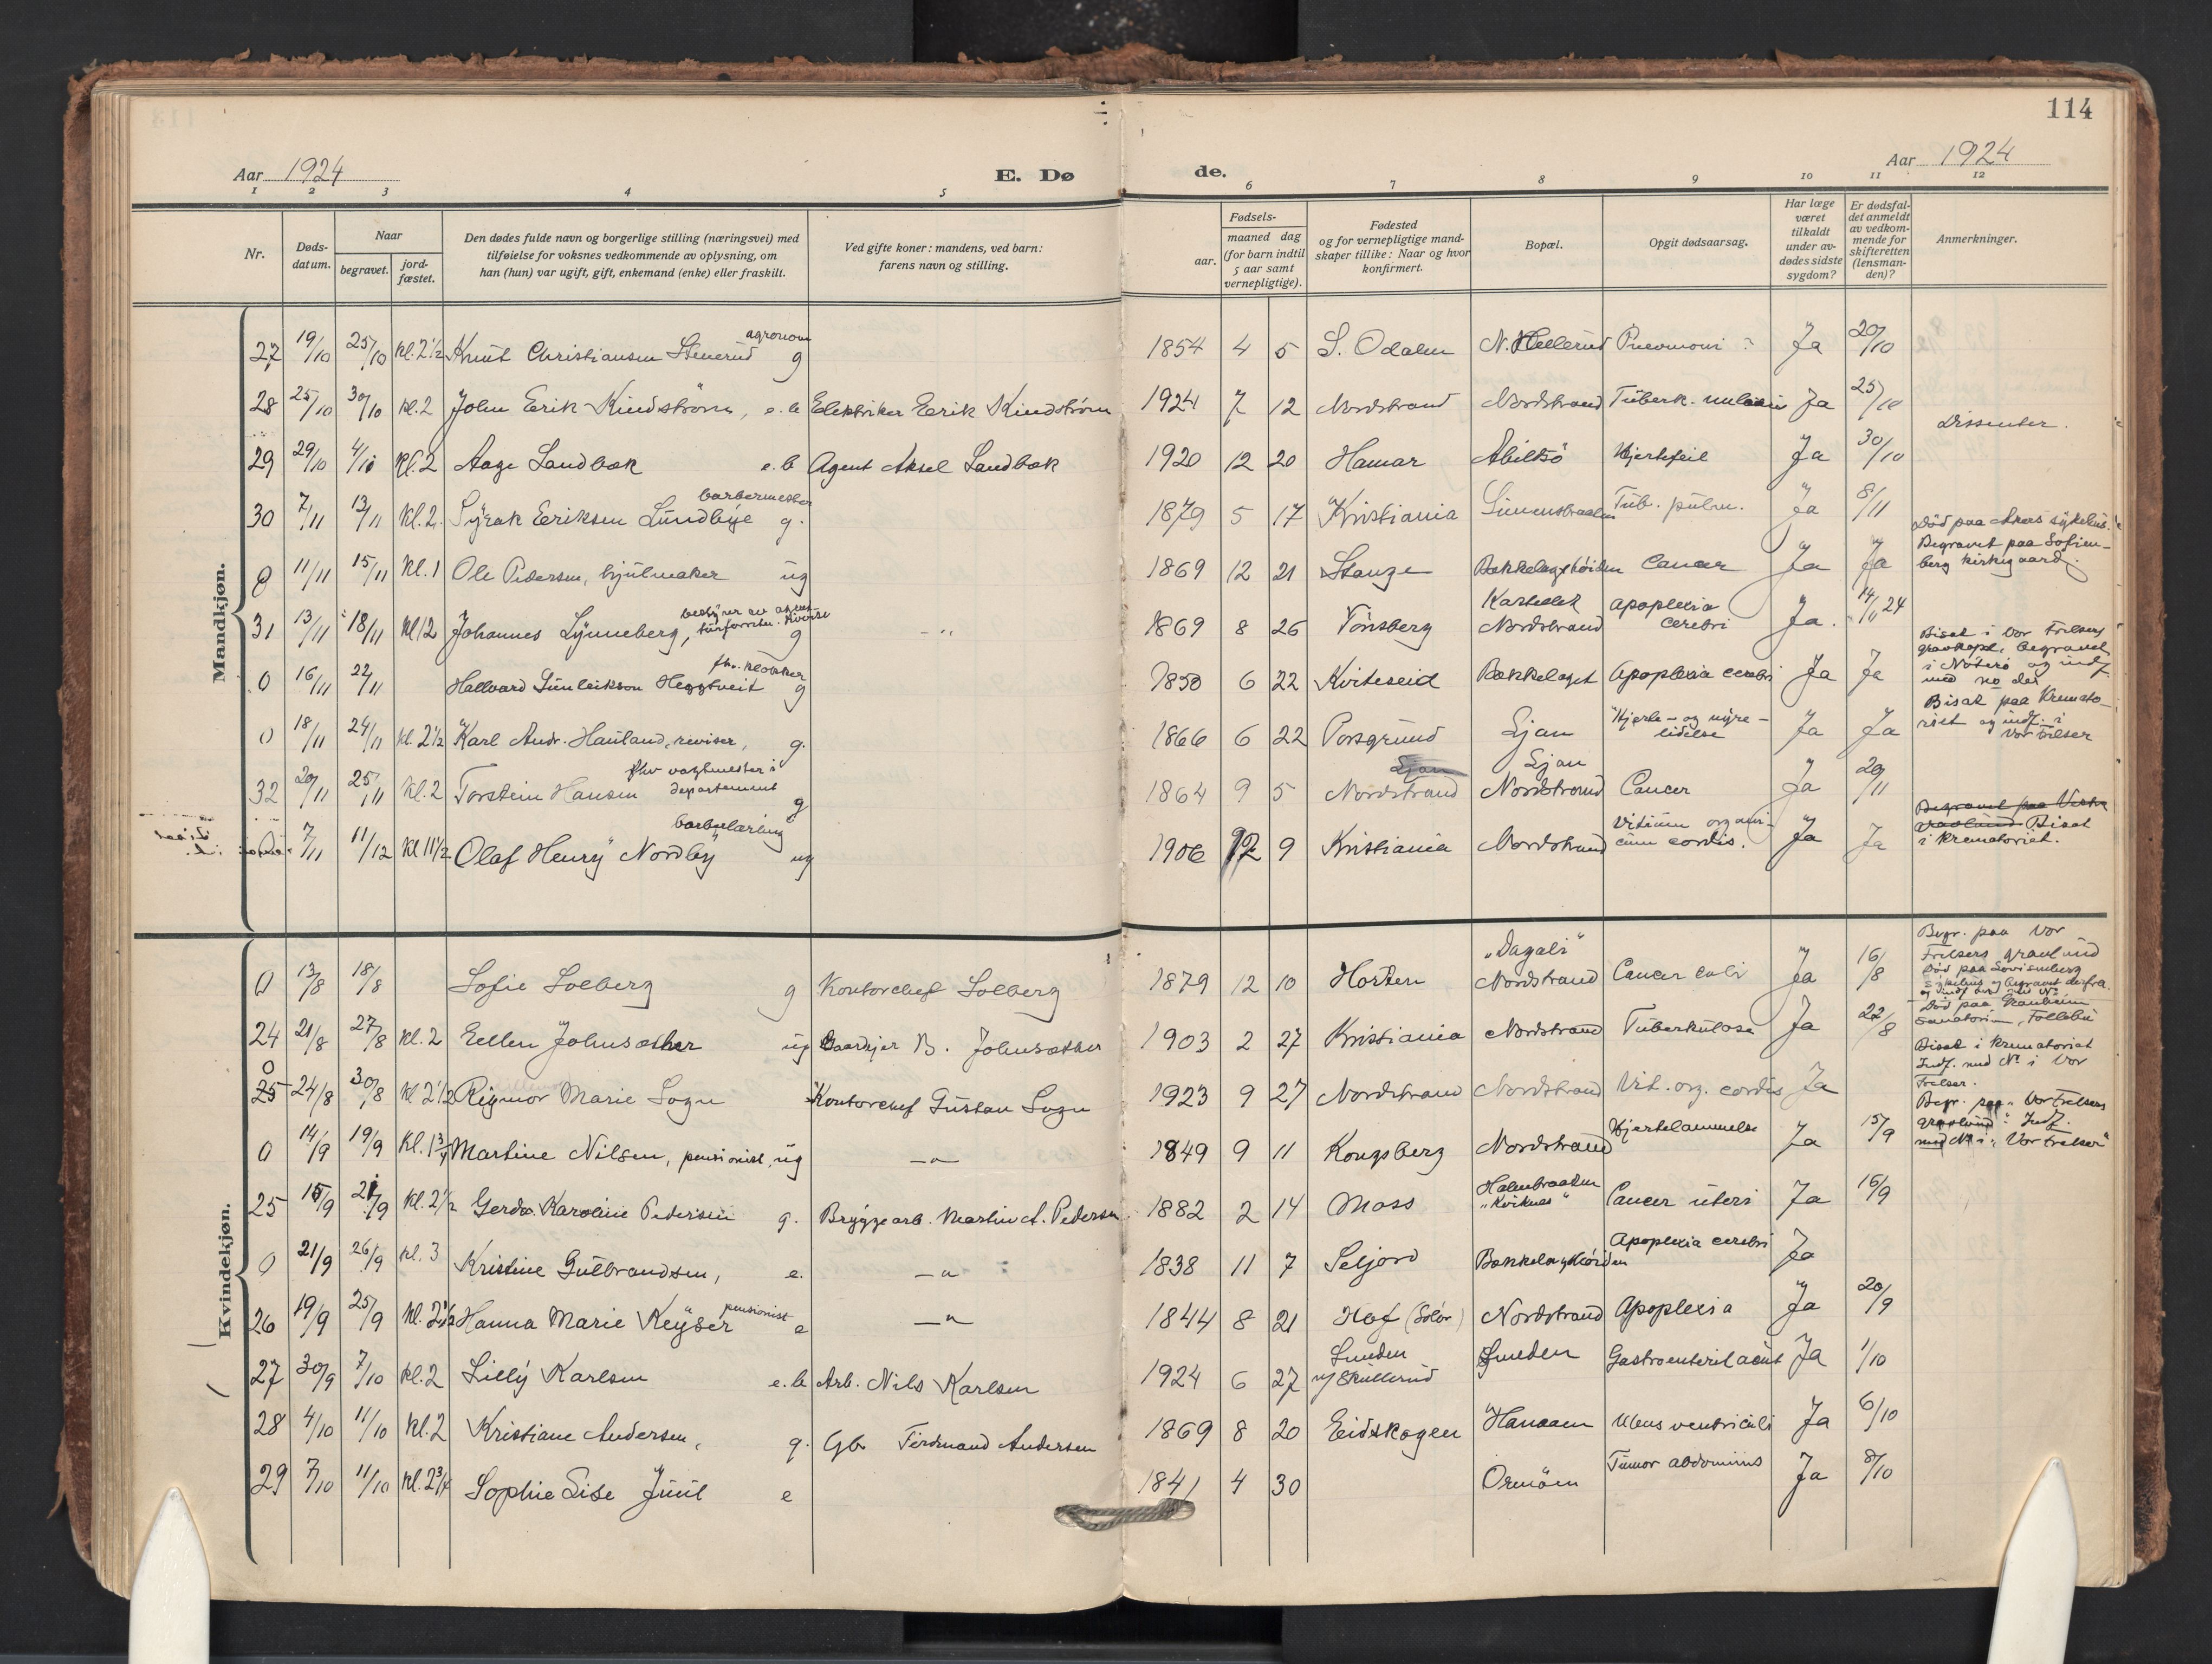 114
Aar 1924 E. Dø de. Aar 1924
1 2 3 4 5 6 7 8 9 10 11 12
Nr.
Døds-
datum.
Naar
begravet.
jord-
fæstet.
Den dødes fulde navn og borgerlige stilling (næringsvei) med
tilføielse for voksnes vedkommende av oplysning, om
han (hun) var ugift, gift, enkemand (enke) eller fraskilt.
Ved gifte koner: mandens, ved barn:
farens navn og stilling.
Fødsels-
aar.
maaned dag
(for barn indtil
5 aar samt
vernepligtige).
Fødested
og for vernepligtige mand-
skaper tillike: Naar og hvor
konfirmert.
Bopæl.
Opgit dødsaarsag.
Har læge
været
tilkaldt
under av-
dødes sidste
sygdom?
Er dødsfal-
det anmeldt
av vedkom-
mende for
skifteretten
(lensman-
den)?
Anmerkninger.
Mandkjøn.
27 19/10 25/10 Kl. 2 1/2 Knut Christiansen Stenerud agronom g 1854 4 5 S. Odalen N. Hellerud Pneumoni ? Ja 20/10
28 25/10 30/10 kl. 2 John Erik Kindström, e. b Elektriker Eerik Kindström 1924 7 12 Nordstrand Nordstrand Tüberk. Ja 25/10 Dissenter.
29 29/10 4/11 Kl. 2 Aage Sandbæk e. b Agent Aksel Sandbæk 1920 12 20 Hamar Abildsö Hjertefeil Ja 30/10
30 7/11 13/11 Kl. 2. Syrak Eeriksen Lundbye barbermester g. 1879 5 17 Kristiania Simensbraaten Tüb. pülm. Ja 8/11
Död paa Akers sykehus.
Begravet paa Sofien-
berg kirkegaard.
0 11/11 15/11 Kl. 1 Ole Pedersen, hjülmaker ug 1869 12 21 Stange Bækkelagshöiden Cancer Ja Ja
31 13/11 18/11 Kl 12 Johannes Lynneberg, g — „ 1869 8 26 Tönsberg Kastellet Nordstrand Apoplexia cerebri Ja. 14/11 24
Bisat i Vor Frelsers
gravkapel, begravet
i Nöterö og indf.
med no der
0 16/11 22/11 Hallvard Gunleikson Heggtveit fhv. klokker g 1850 6 22 Kviteseid Bækkelaget Apoplexia cerebri Ja Ja
Bisat paa Kremato-
riet og indf. i
Vor Frelser
0 18/11 24/11 Kl. 2 1/2 Karl Andr. Hauland, reviser, g. 1866 6 22 Porsgrund Ljan Hjerte- og nyre-
lidelse Ja Ja
32 20/11 25/11 Kl. 2 Torstein Hansen fhv vagtmester i departement g 1864 9 5 Ljan Nordstrand Ljan Nordstrand Cancer Ja 20/11
0 7/11 11/12 Kl 11 1/2 Olaf Henry Nordby ug 1906 12 9 Kristiania Nordstrand Vitium organi-
cum cordis. Ja Ja
Begravet paa Vestre
gravlund Bisat
i Krematoriet.
Kvindekjøn.
0 13/8 18/8 Sofie Solberg g Kontorchef Solberg 1879 12 10 Horten „Dagali" Nordstrand Cancer Ja 16/8
Begr. paa Vor
Frelsers gravlund
Död paa Lovisenberg
24 21/8 27/8 Kl. 2 Eellen Johnsæther ug Gaardejer B. Johnsæther 1903 2 27 Kristiania Nordstrand Tüberkülose Ja 22/8
Död paa Granheim
sanatorium, Follebu
0
25 24/8 30/8 Kl 2 1/2 Rigmor Marie Sogn Kontorchef Gustav Sogn 1923 9 27 Nordstrand Nordstrand Vit. org. cordis Ja
Bisat i krematoriet
Indf. med No i Vor
Frelser.
0 14/9 19/9 Kl. 1 3/4 Martine Nilsen, pensionist, ug — „ 1849 9 11 Kongsberg Nordstrand Hjertelammelse Ja 15/9
Begr. paa „Vor Frelsers
gravlund". Indf.
med No i „Vor Frelser"
25 15/9 21/9 Kl. 2 1/2 Gerda Karoline Pedersen g. Bryggearb. Martin A. Pedersen 1882 2 14 Moss Holmbraaten „Kviknes" Cancer üteri Ja 16/9
0 21/9 26/9 Kl. 3 Kristine Gulbrandsen, e. — „ 1838 11 7 Seljord Bækkelagshöiden Apoplexia cerebri Ja
26 19/9 25/9 Kl. 2 1/2 Hanna Marie Keyser pensionist e — „ 1844 8 21 Hof (Solör) Nordstrand Apoplexia Ja 20/9
27 30/9 7/10 Kl. 2 Lilly Karlsen e. b Arb. Nils Karlsen 1924 6 27 Smeden u/ Skullerud Smeden Gastroenterit acut Ja 1/10
28 4/10 11/10 Kl. 2 Kristiane Andersen, g. Gb. Ferdinand Andersen 1869 8 20 Eidskogen Ulcus ventriculi Ja 6/10
29 7/10 11/10 Kl. 2 3/4 Sophie Lise Juul e 1841 4 30 Ormöen Tumor abdominis Ja 8/10